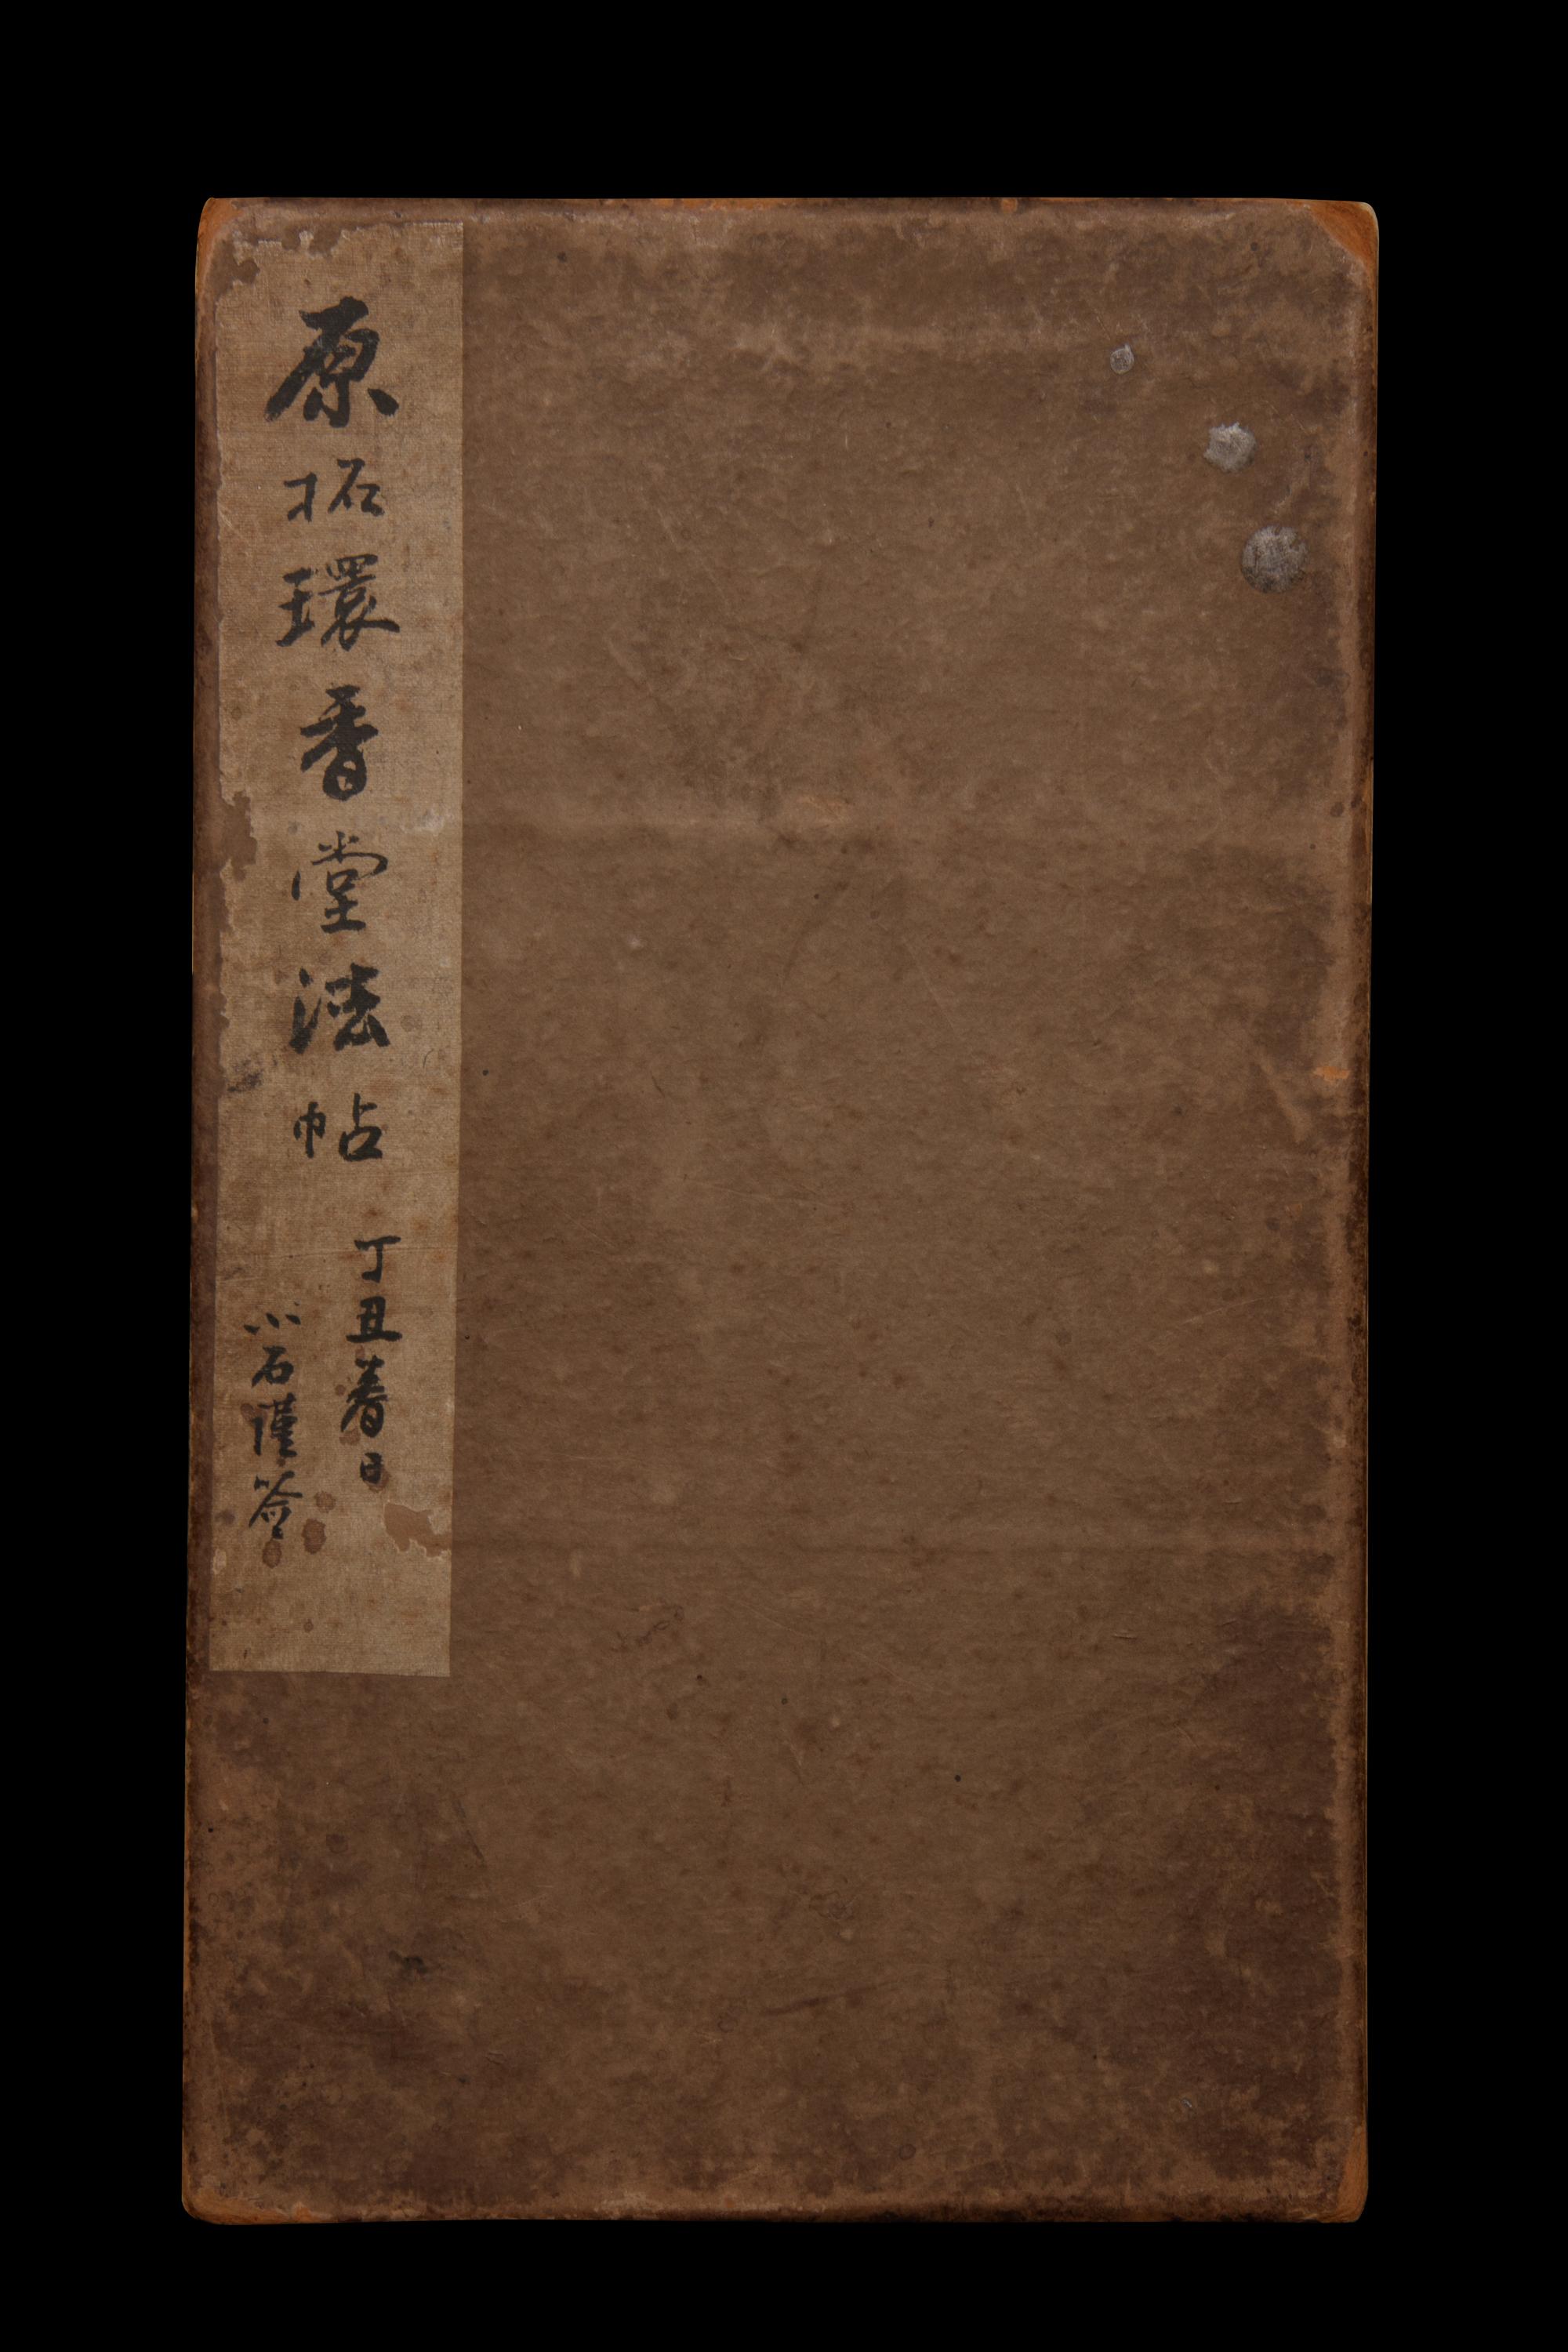 原拓環香堂法帖
丁丑暮日
小石謹签